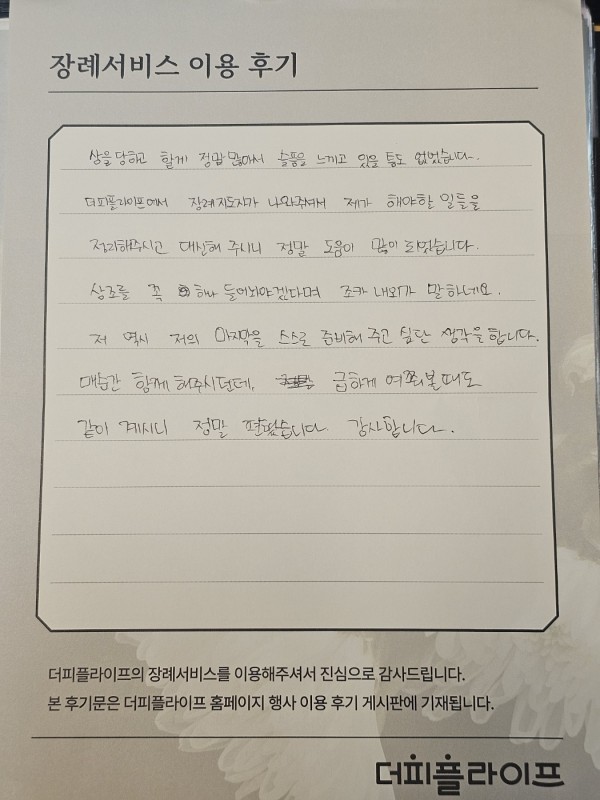 장례서비스 이용 후기
상을당하고 할게 정말 많아서 슬픔을 느끼고 있을 틈도 없었습니다.
더피플라이프에서 장례지도자가 나와주셔서 제가 해야할 일들을
정리해주시고 대신해 주시니 정말 도움이 많이 되었습니다.
상조를 꼭 하나 들어놔야겠다며 조카 내외가 말하네요.
저 역시 저의 마지막을 스스로 준비해 주고 싶단 생각을 합니다.
매순간 함께 해주시던데, 급하게 여쭤볼때도
같이 계시니 정말 편했습니다. 감사합니다.
더피플라이프의 장례서비스를 이용해주셔서 진심으로 감사드립니다.
본 후기문은 더피플라이프 홈페이지 행사 이용 후기 게시판에 기재됩니다.
더피플라이프